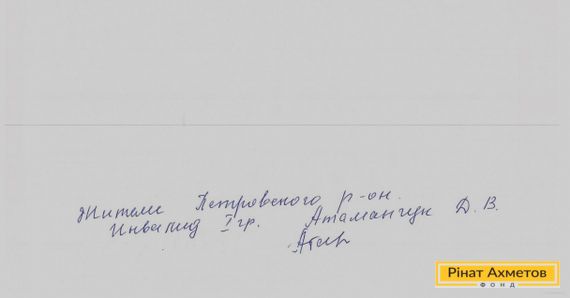 Жители Петровского р-он.
Инвалид I гр. Атаманчук Д. В.
Рінат Ахметов
ФОНД